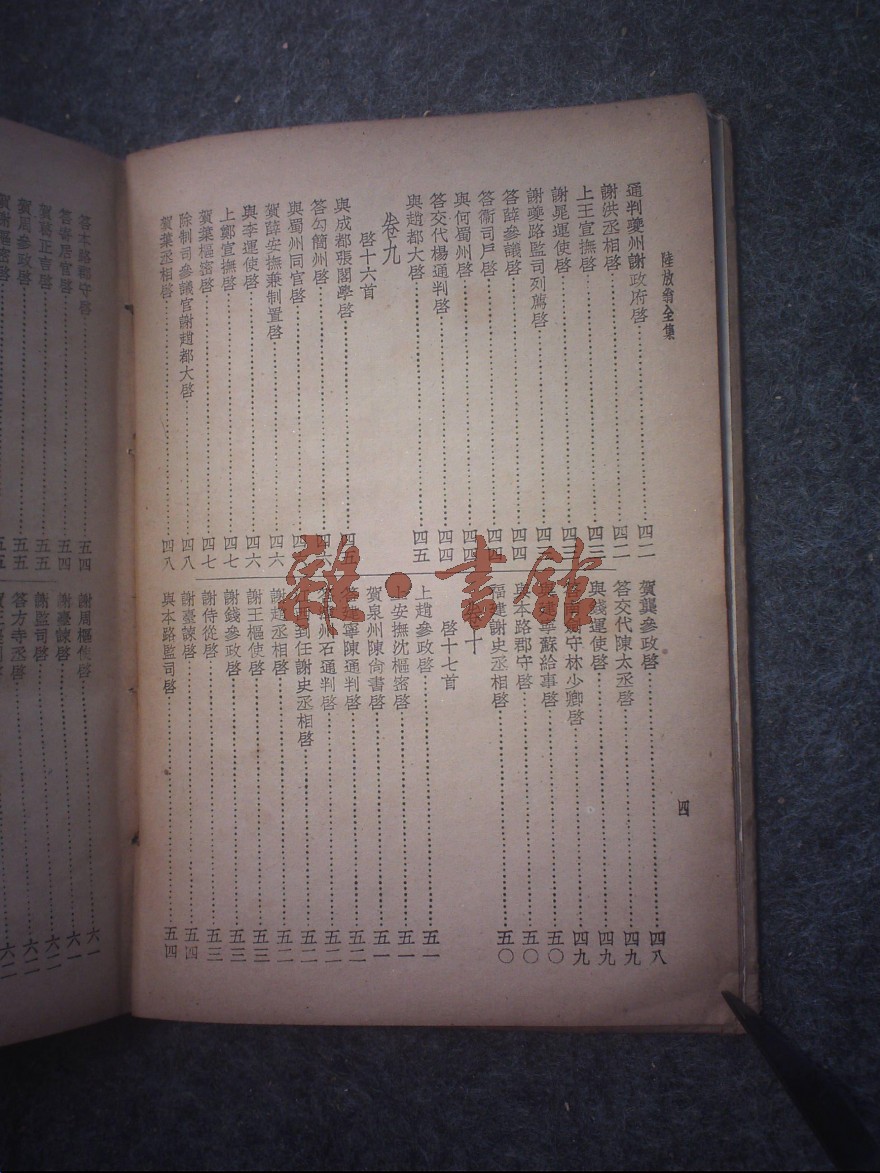 陸放翁全集
通判夔州謝政府啓……四二
謝洪丞相啓……四二
上王宣撫啓……四三
謝晁運使啓……四三
謝夔路監司列薦啓……四三
答薛參議啓……四四
答衞司戶啓……四四
與何蜀州啓……四四
答交代楊通判啓……四四
與趙都大啓……四五
卷九
啓十六首
與成都張閣學啓……四五
答勾簡州啓……四六
與蜀州同官啓……四六
賀薛安撫兼制置啓……四六
與李運使啓……四六
上鄭宣撫啓……四七
賀葉樞密啓……四七
除制司參議官謝趙都大啓……四八
賀葉丞相啓……四八
賀龔參政啓……四八
答交代陳太丞啓……四九
與錢運使啓……四九
守林少卿啓……四九
蘇給事啓……五〇
與本路郡守啓……五〇
福建謝史丞相啓……五〇
十
啓十七首
上趙參政啓……五一
上安撫沈樞密啓……五一
賀泉州陳尙書啓……五一
答建寧陳通判啓……五二
州石通判啓……五二
到任謝史丞相啓……五二
謝趙丞相啓……五二
謝王樞使啓……五三
謝錢參政啓……五三
謝侍從啓……五三
謝臺諫啓……五四
與本路監司啓……五四
四
答本路郡守啓……五四
答寄居官啓……五四
賀蔡正言啓……五五
賀周參政啓……五五
賀謝樞密啓……五五
謝周樞使啓……六一
謝臺諫啓……六一
謝監司啓……六二
答方寺丞啓……六二
雜·書館